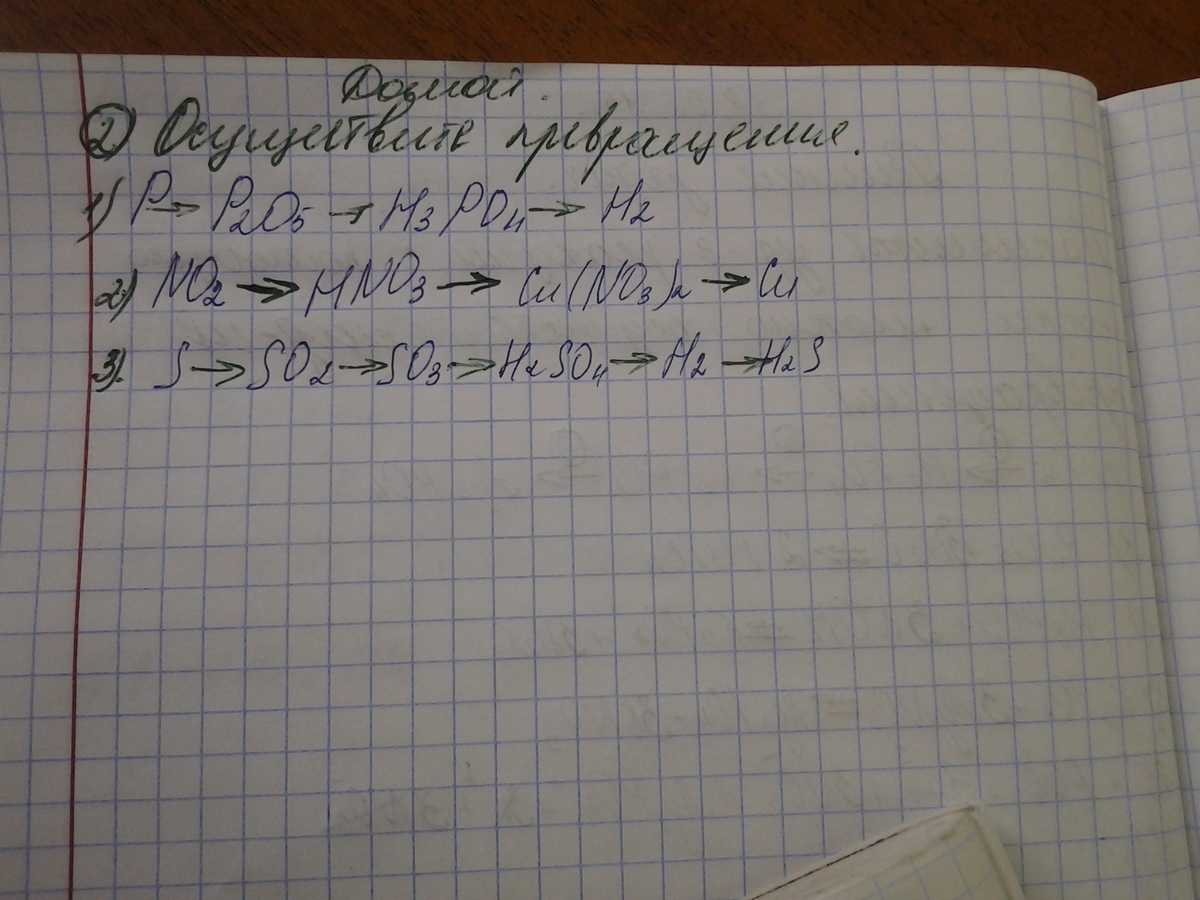 Домой.
② Осуществите превращения.
1) P → P₂O₅ → H₃PO₄ → H₂
2) NO₂ → HNO₃ → Cu(NO₃)₂ → Cu
3). S → SO₂ → SO₃ → H₂SO₄ → H₂ → H₂S